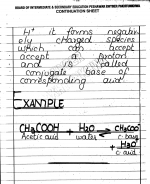 BOARD OF INTERMEDIATE & SECONDARY EDUCATION PESHAWAR
CONTINUATION SHEET
H⁺ it forms negativ-
ely charged species
which can accept
accept a proton
and is called
conjugate base of
corresponding acid
EXAMPLE
CH₃COOH + H₂O ⇌ CH₃COO⁻
Acetic acid water c. base
+
H₃O⁺
c. acid